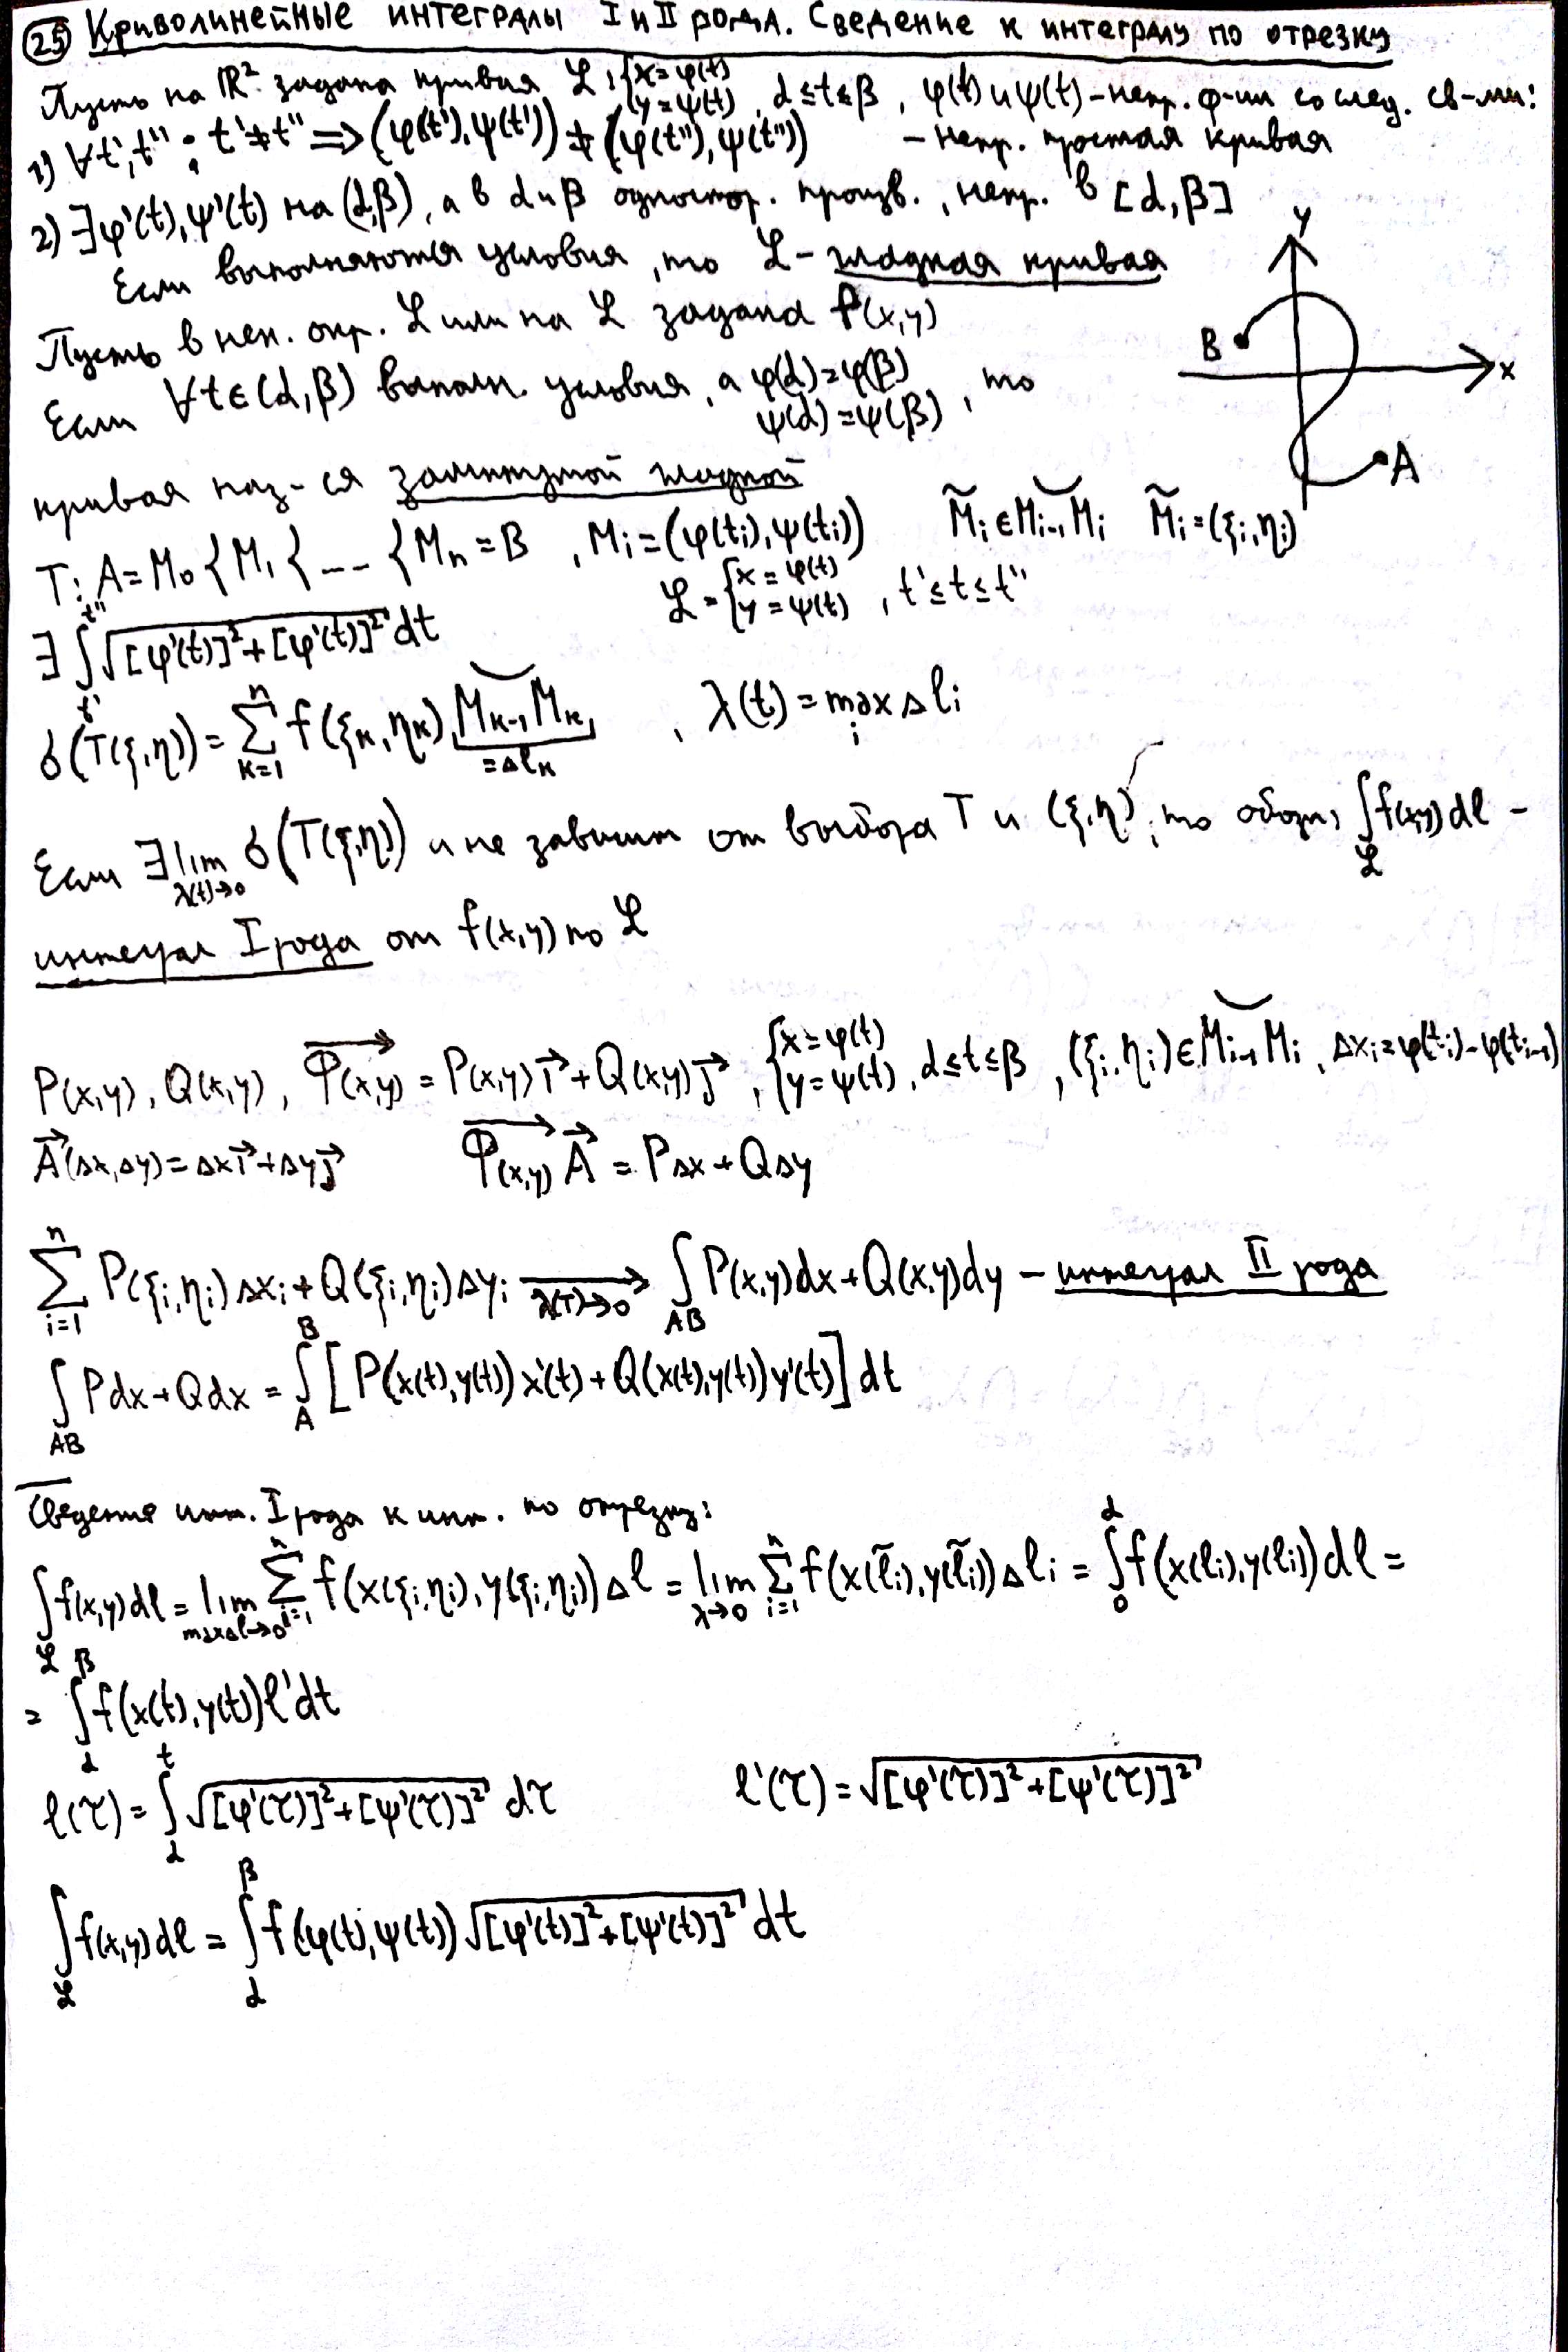 25 Криволинейные интегралы I и II рода. Сведение к интегралу по отрезку
Пусть на ℝ² задана кривая ℒ: {x=φ(t) y=ψ(t), α≤t≤β, φ(t) и ψ(t) – непр. ф-ии со след. св-ми:
1) ∀t',t'': t'≠t'' ⇒ (φ(t'),ψ(t')) ≠ (φ(t''),ψ(t'')) – непр. простая кривая
2) ∃φ'(t),ψ'(t) на (α,β), а в α и β одностор. произв., непр. в [α,β]
Если выполняются условия, то ℒ – гладкая кривая
y
Пусть в нек. окр. ℒ или на ℒ задана f(x,y)
B
x
Если ∀t∈(α,β) выполн. условия, а φ(α)=φ(β) ψ(α)=ψ(β), то
A
кривая наз-ся замкнутой гладкой
T: A=M₀{M₁{...{Mₙ=B, Mᵢ=(φ(tᵢ),ψ(tᵢ)) M̃ᵢ∈Mᵢ₋₁Mᵢ M̃ᵢ=(ξᵢ,ηᵢ)
∃ ∫_{t'}^{t''} √([φ'(t)]²+[φ'(t)]²) dt ℒ={x=φ(t) y=ψ(t), t'≤t≤t''
σ(T(ξ,η))=∑_{k=1}^{n} f(ξₖ,ηₖ) Mₖ₋₁Mₖ =Δlₖ, λ(t)=max_i Δlᵢ
Если ∃ lim_{λ(t)→0} σ(T(ξ,η)) и не зависит от выбора T и (ξ,η), то обозн, ∫_ℒ f(x,y)dl –
интеграл I рода от f(x,y) по ℒ
P(x,y), Q(x,y), Φ(x,y)=P(x,y)i⃗+Q(x,y)j⃗, {x=φ(t) y=ψ(t), α≤t≤β, (ξᵢ,ηᵢ)∈Mᵢ₋₁Mᵢ, Δxᵢ=φ(tᵢ)-φ(tᵢ₋₁)
A⃗(Δx,Δy)=Δxi⃗+Δyj⃗ Φ(x,y) A⃗ = PΔx+QΔy
∑_{i=1}^{n} P(ξᵢ,ηᵢ)Δxᵢ+Q(ξᵢ,ηᵢ)Δyᵢ →_{λ(T)→0} ∫_{AB} P(x,y)dx+Q(x,y)dy – интеграл II рода
∫_{AB} Pdx+Qdx = ∫_A^B [P(x(t),y(t))x'(t)+Q(x(t),y(t))y'(t)]dt
Сведение инт. I рода к инт. по отрезку:
∫_ℒ f(x,y)dl = lim_{maxΔl→0} ∑_{i=1}^{n} f(x(ξᵢ,ηᵢ),y(ξᵢ,ηᵢ))Δl = lim_{λ→0} ∑_{i=1}^{n} f(x(l̃ᵢ),y(l̃ᵢ))Δlᵢ = ∫_0^α f(x(lᵢ),y(lᵢ))dl =
= ∫_α^β f(x(t),y(t))l'dt
l(τ)=∫_α^t √([φ'(τ)]²+[ψ'(τ)]²) dτ l'(τ)=√([φ'(τ)]²+[ψ'(τ)]²)
∫_ℒ f(x,y)dl = ∫_α^β f(φ(t),ψ(t))√([φ'(t)]²+[ψ'(t)]²) dt